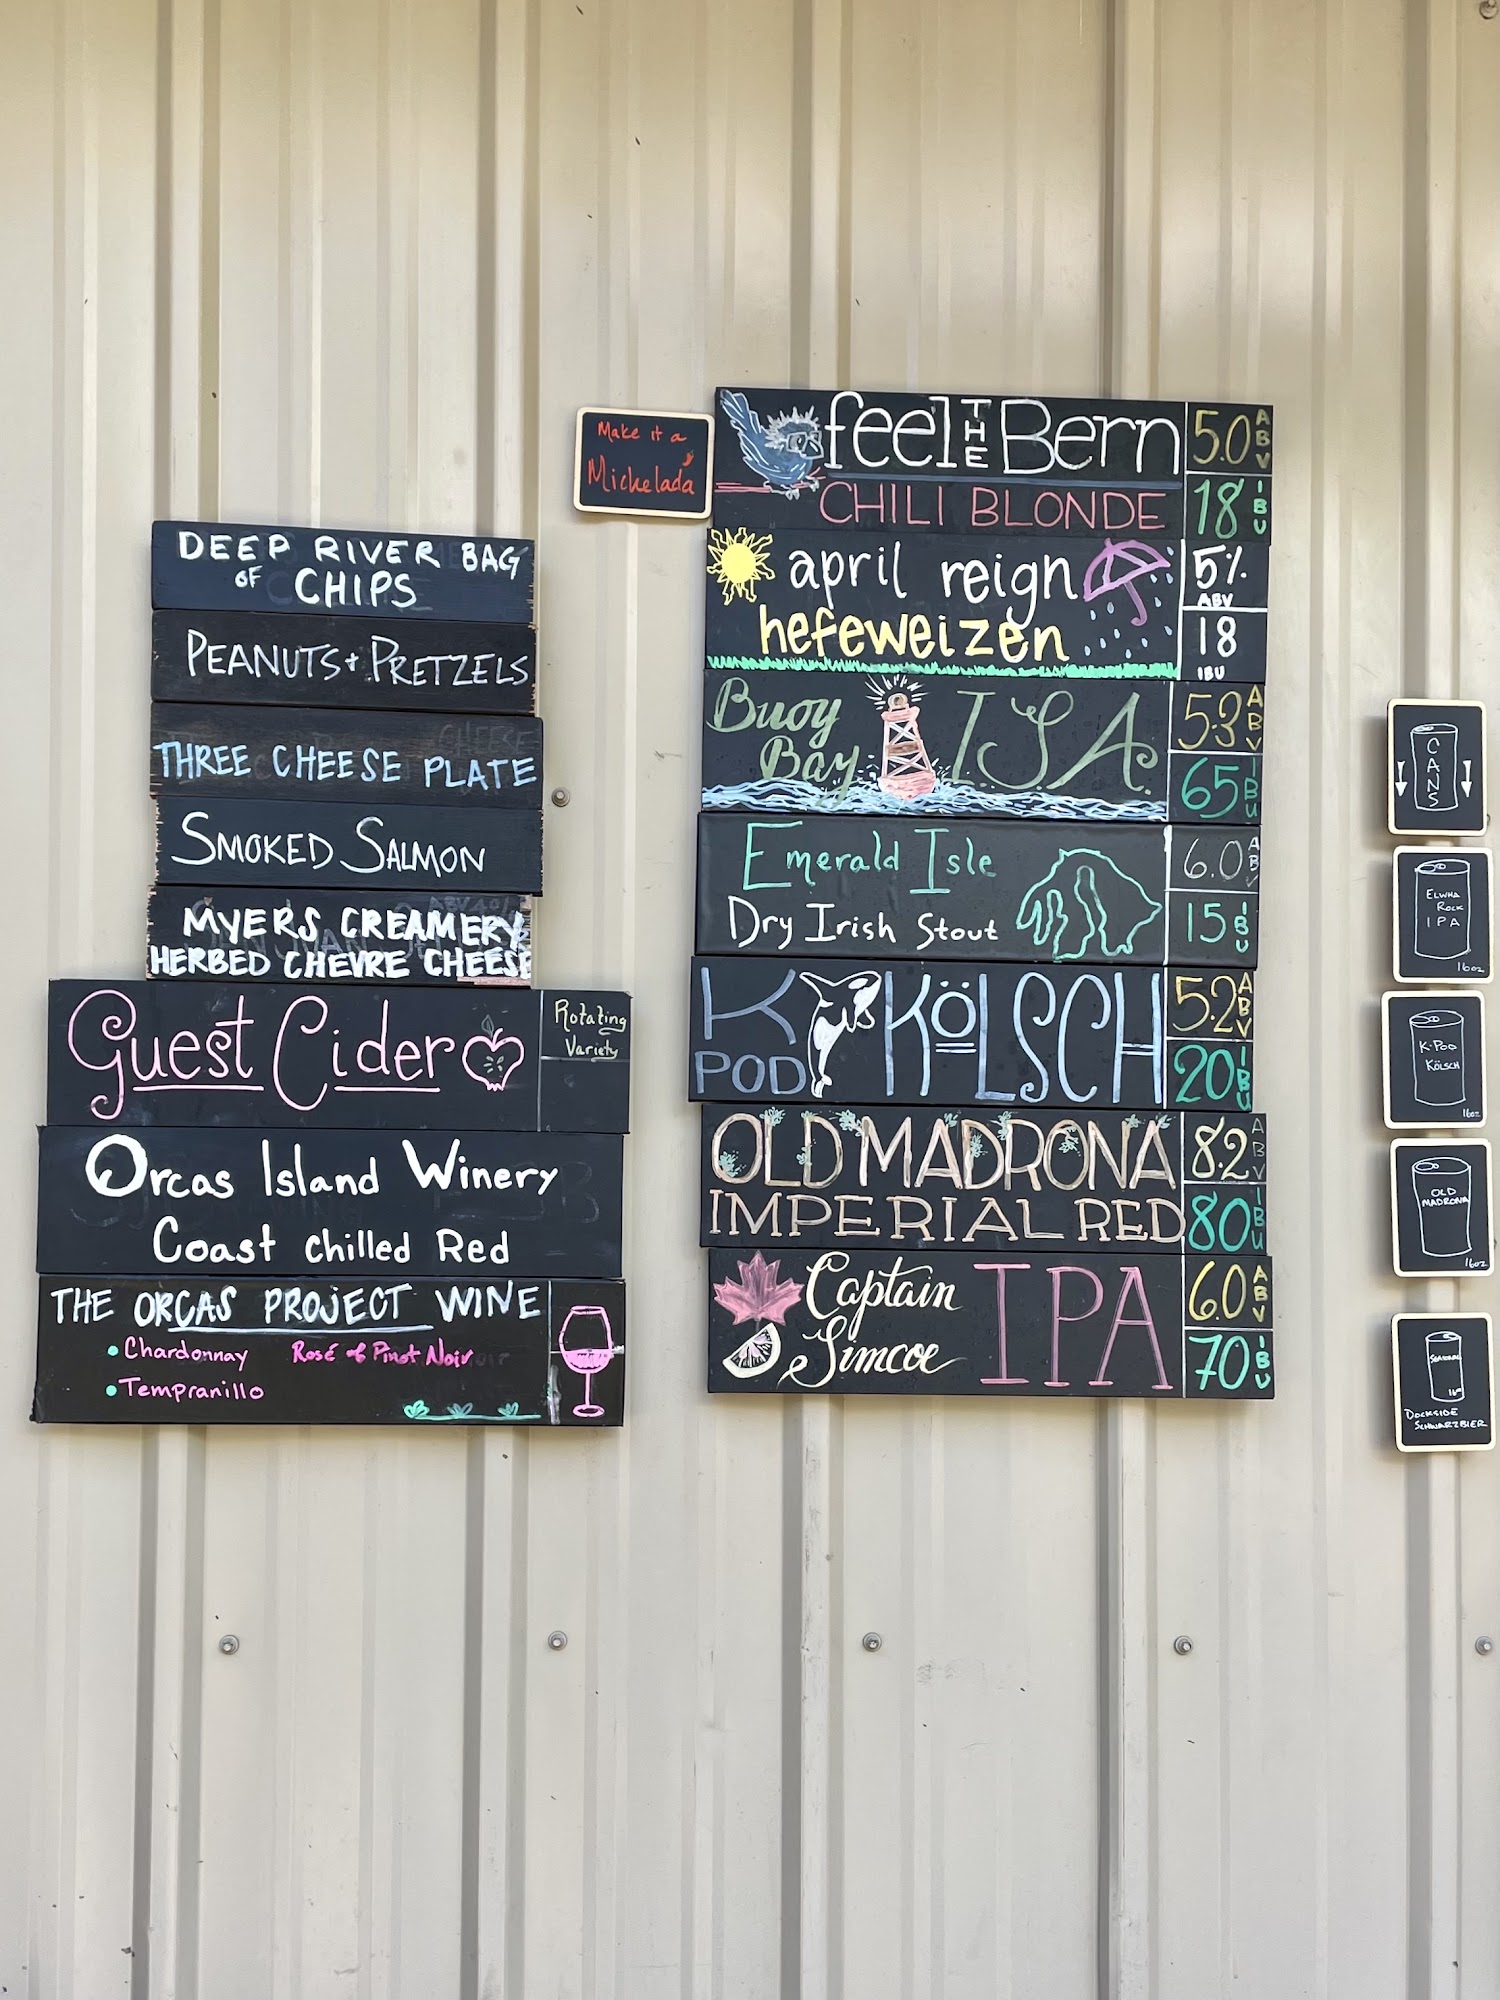 DEEP RIVER BAG
OF CHIPS
PEANUTS + PRETZELS
THREE CHEESE PLATE
SMOKED SALMON
MYERS CREAMERY
HERBED CHEVRE CHEESE
Guest Cider
Rotating
Variety
Orcas Island Winery
Coast chilled Red
THE ORCAS PROJECT WINE
• Chardonnay Rosé of Pinot Noir
• Tempranillo
Make it a
Michelada
feel THE Bern
CHILI BLONDE
5.0 ABV
18 IBU
april reign
hefeweizen
5%
ABV
18
IBU
Buoy
Bay
I.S.A.
5.3 ABV
65 IBU
Emerald Isle
Dry Irish Stout
6.0 ABV
15 IBU
K
POD
KÖLSCH
5.2 ABV
20 IBU
OLD MADRONA
IMPERIAL RED
8.2 ABV
80 IBU
Captain
Simcoe
IPA
6.0 ABV
70 IBU
CANS
ELWHA
ROCK
IPA
16oz
K-POD
KÖLSCH
16oz
OLD
MADRONA
16oz
SEASONAL
DOCKSIDE
SCHWARZBIER